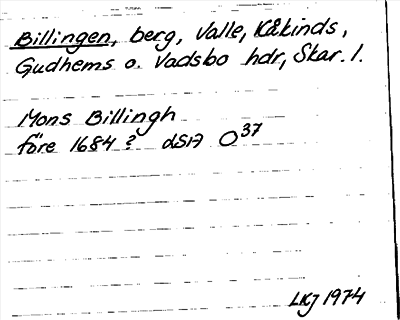 Billingen, berg, Valle, Kåkinds,
Gudhems o. Vadsbo hdr, Skar. l.
Mons Billingh
före 1684 ? dSiA O 37
LKJ 1974